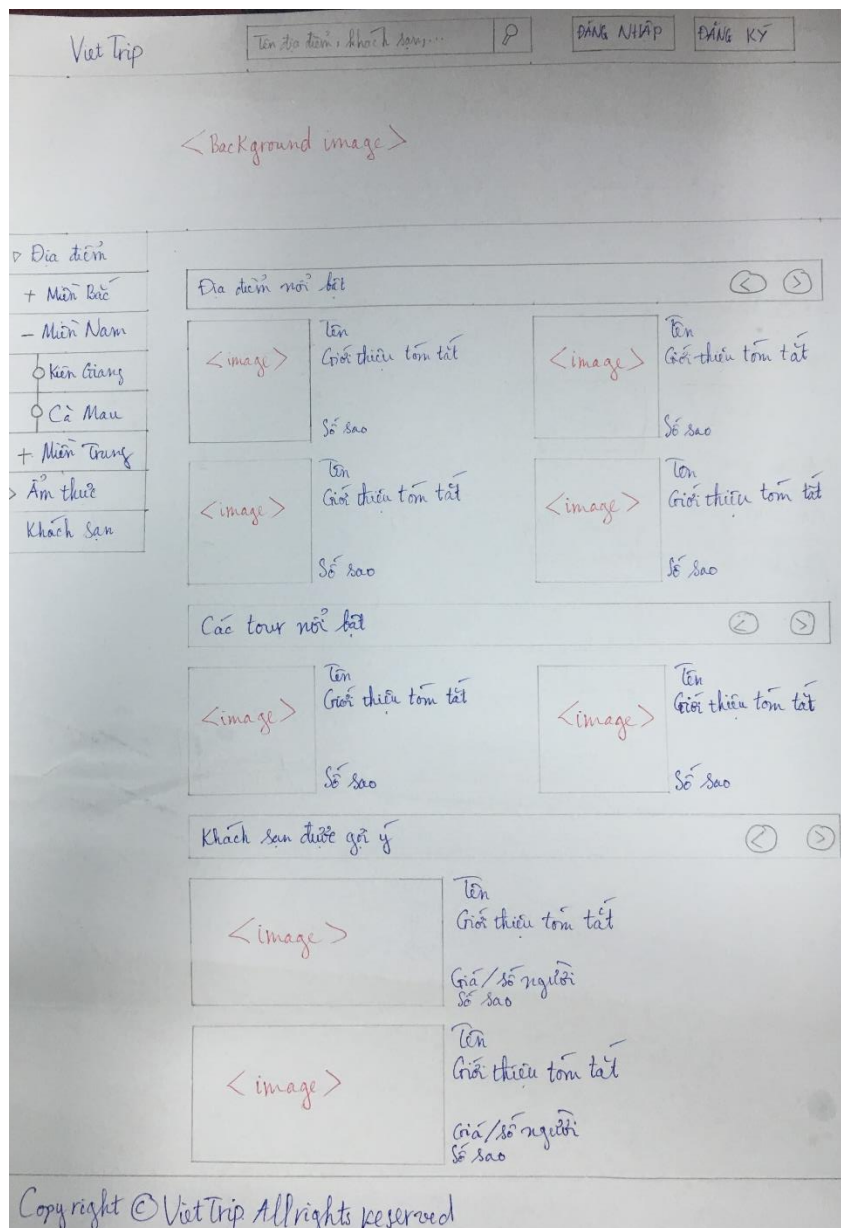 Viet Trip
Tên địa điểm, khách sạn,...
ĐĂNG NHẬP
ĐĂNG KÝ
<Background image>
▷ Địa điểm
+ Miền Bắc
- Miền Nam
Kiên Giang
Cà Mau
+ Miền Trung
> Ẩm thực
Khách sạn
Địa điểm nổi bật
< >
<image>
Tên
Giới thiệu tóm tắt
Số sao
<image>
Tên
Giới thiệu tóm tắt
Số sao
<image>
Tên
Giới thiệu tóm tắt
Số sao
<image>
Tên
Giới thiệu tóm tắt
Số sao
Các tour nổi bật
< >
<image>
Tên
Giới thiệu tóm tắt
Số sao
<image>
Tên
Giới thiệu tóm tắt
Số sao
Khách sạn được gợi ý
< >
<image>
Tên
Giới thiệu tóm tắt
Giá/số người
Số sao
<image>
Tên
Giới thiệu tóm tắt
Giá/số người
Số sao
Copyright © VietTrip. All rights reserved